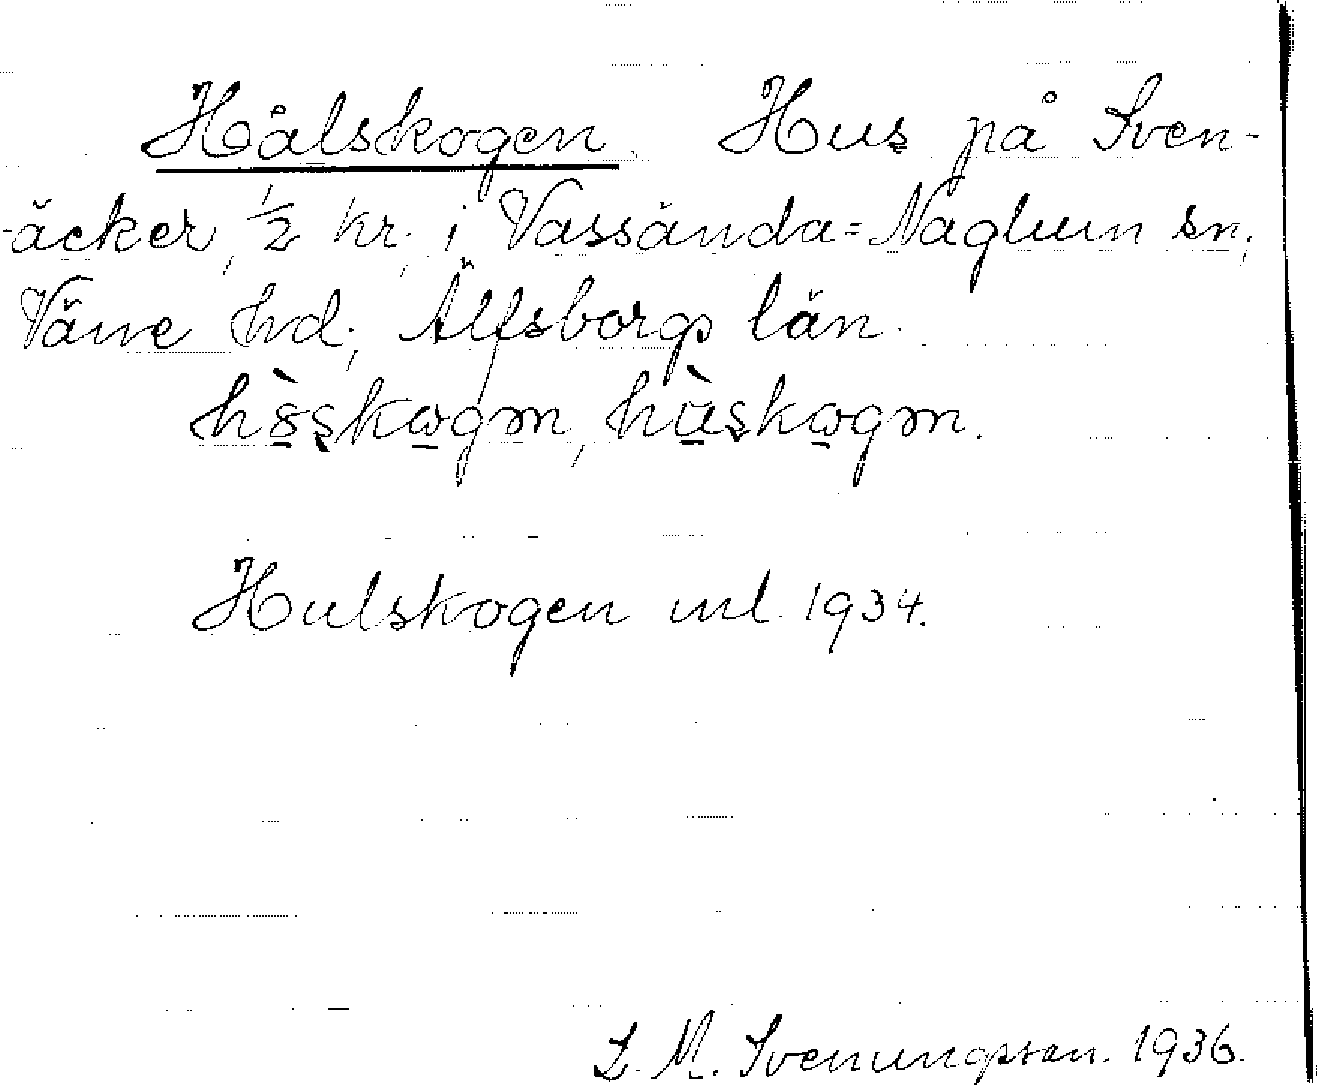 Hålskogen. Hus på Sven-
-äcker, 1/2 kr, i Vassända=Naglum sn,
Väne hd, Älfsborgs län.
Hulskogen ml 1934.
S. M. Svenungsson. 1936.